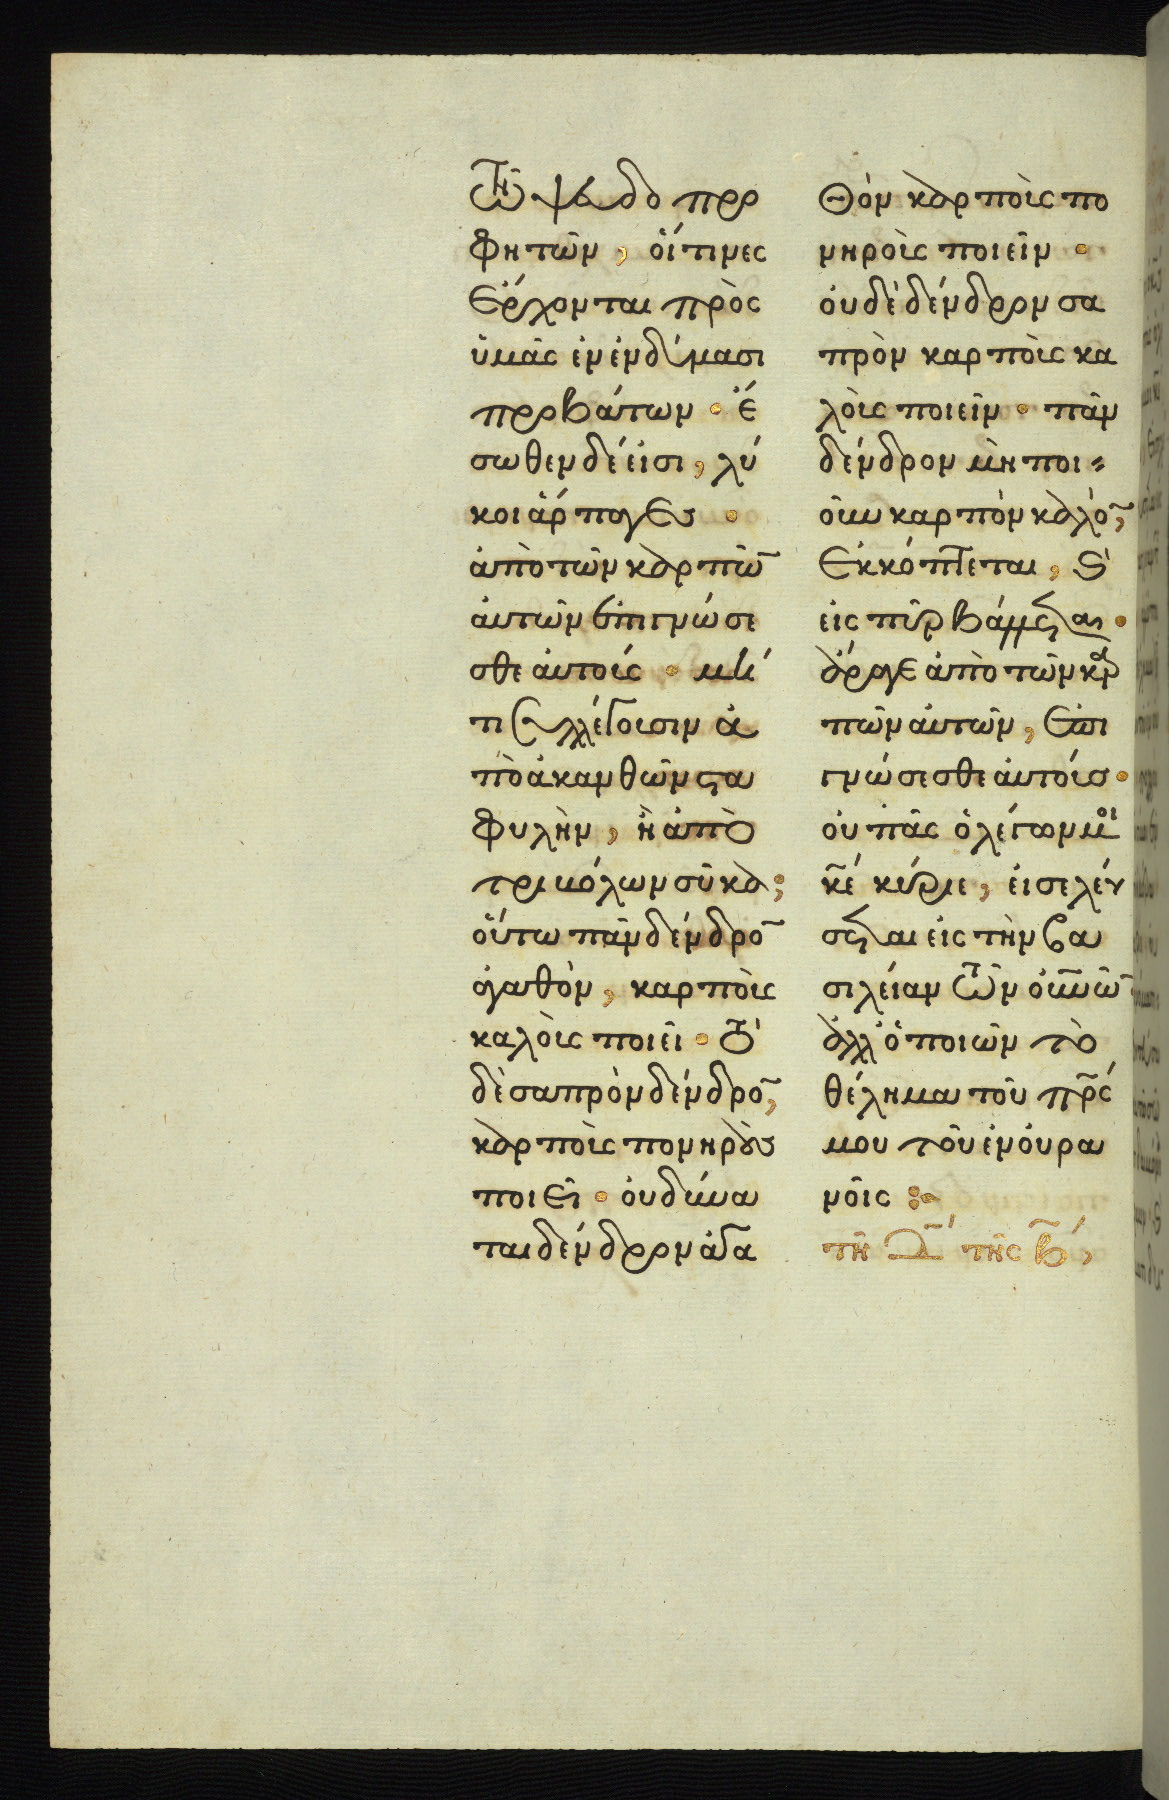 τῶν ψευδοπρο
φητῶν, οἵτινες
ἔρχονται πρὸς
ὑμᾶς ἐν ἐνδύμασι
προβάτων · ἔ
σωθεν δέ εἰσι, λύ
κοι ἅρπαγες ·
ἀπὸ τῶν καρπῶ̄
αὐτῶν ἐπιγνώσε
σθε αὐτούς · μή
τι συλλέγουσιν ἀ
πὸ ἀκανθῶν στα
φυλὴν, ἢ ἀπὸ
τριβόλων σῦκα;
οὕτω πᾶν δένδρο̄
ἀγαθὸν, καρποὺς
καλοὺς ποιεῖ · τὸ
δὲ σαπρὸν δένδρο̄,
καρποὺς πονηροὺς
ποιεῖ · οὐ δύνα
ται δένδρον ἀγα
θὸν καρποὺς πο
νηροὺς ποιεῖν ·
οὐδὲ δένδρον σα
πρὸν καρποὺς κα
λοὺς ποιεῖν · πᾶν
δένδρον μὴ ποι-
οῦν καρπὸν καλὸ̄,
ἐκκόπτεται, καὶ
εἰς πῦρ βάλλεται ·
ἄραγε ἀπὸ τῶν καρ
πῶν αὐτῶν, ἐπι
γνώσεσθε αὐτούς ·
οὐ πᾶς ὁ λέγων μοι
κ̄ε κύριε, εἰσελεύ
σεται εἰς τὴν βα
σιλείαν τῶν οὐ̄νῶ̄
ἀλλ' ὁ ποιῶν τὸ
θέλημα τοῦ πρ̄ς
μου τοῦ ἐν οὐρα
νοῖς :~
τῇ Δ̄ τῆς β̄,